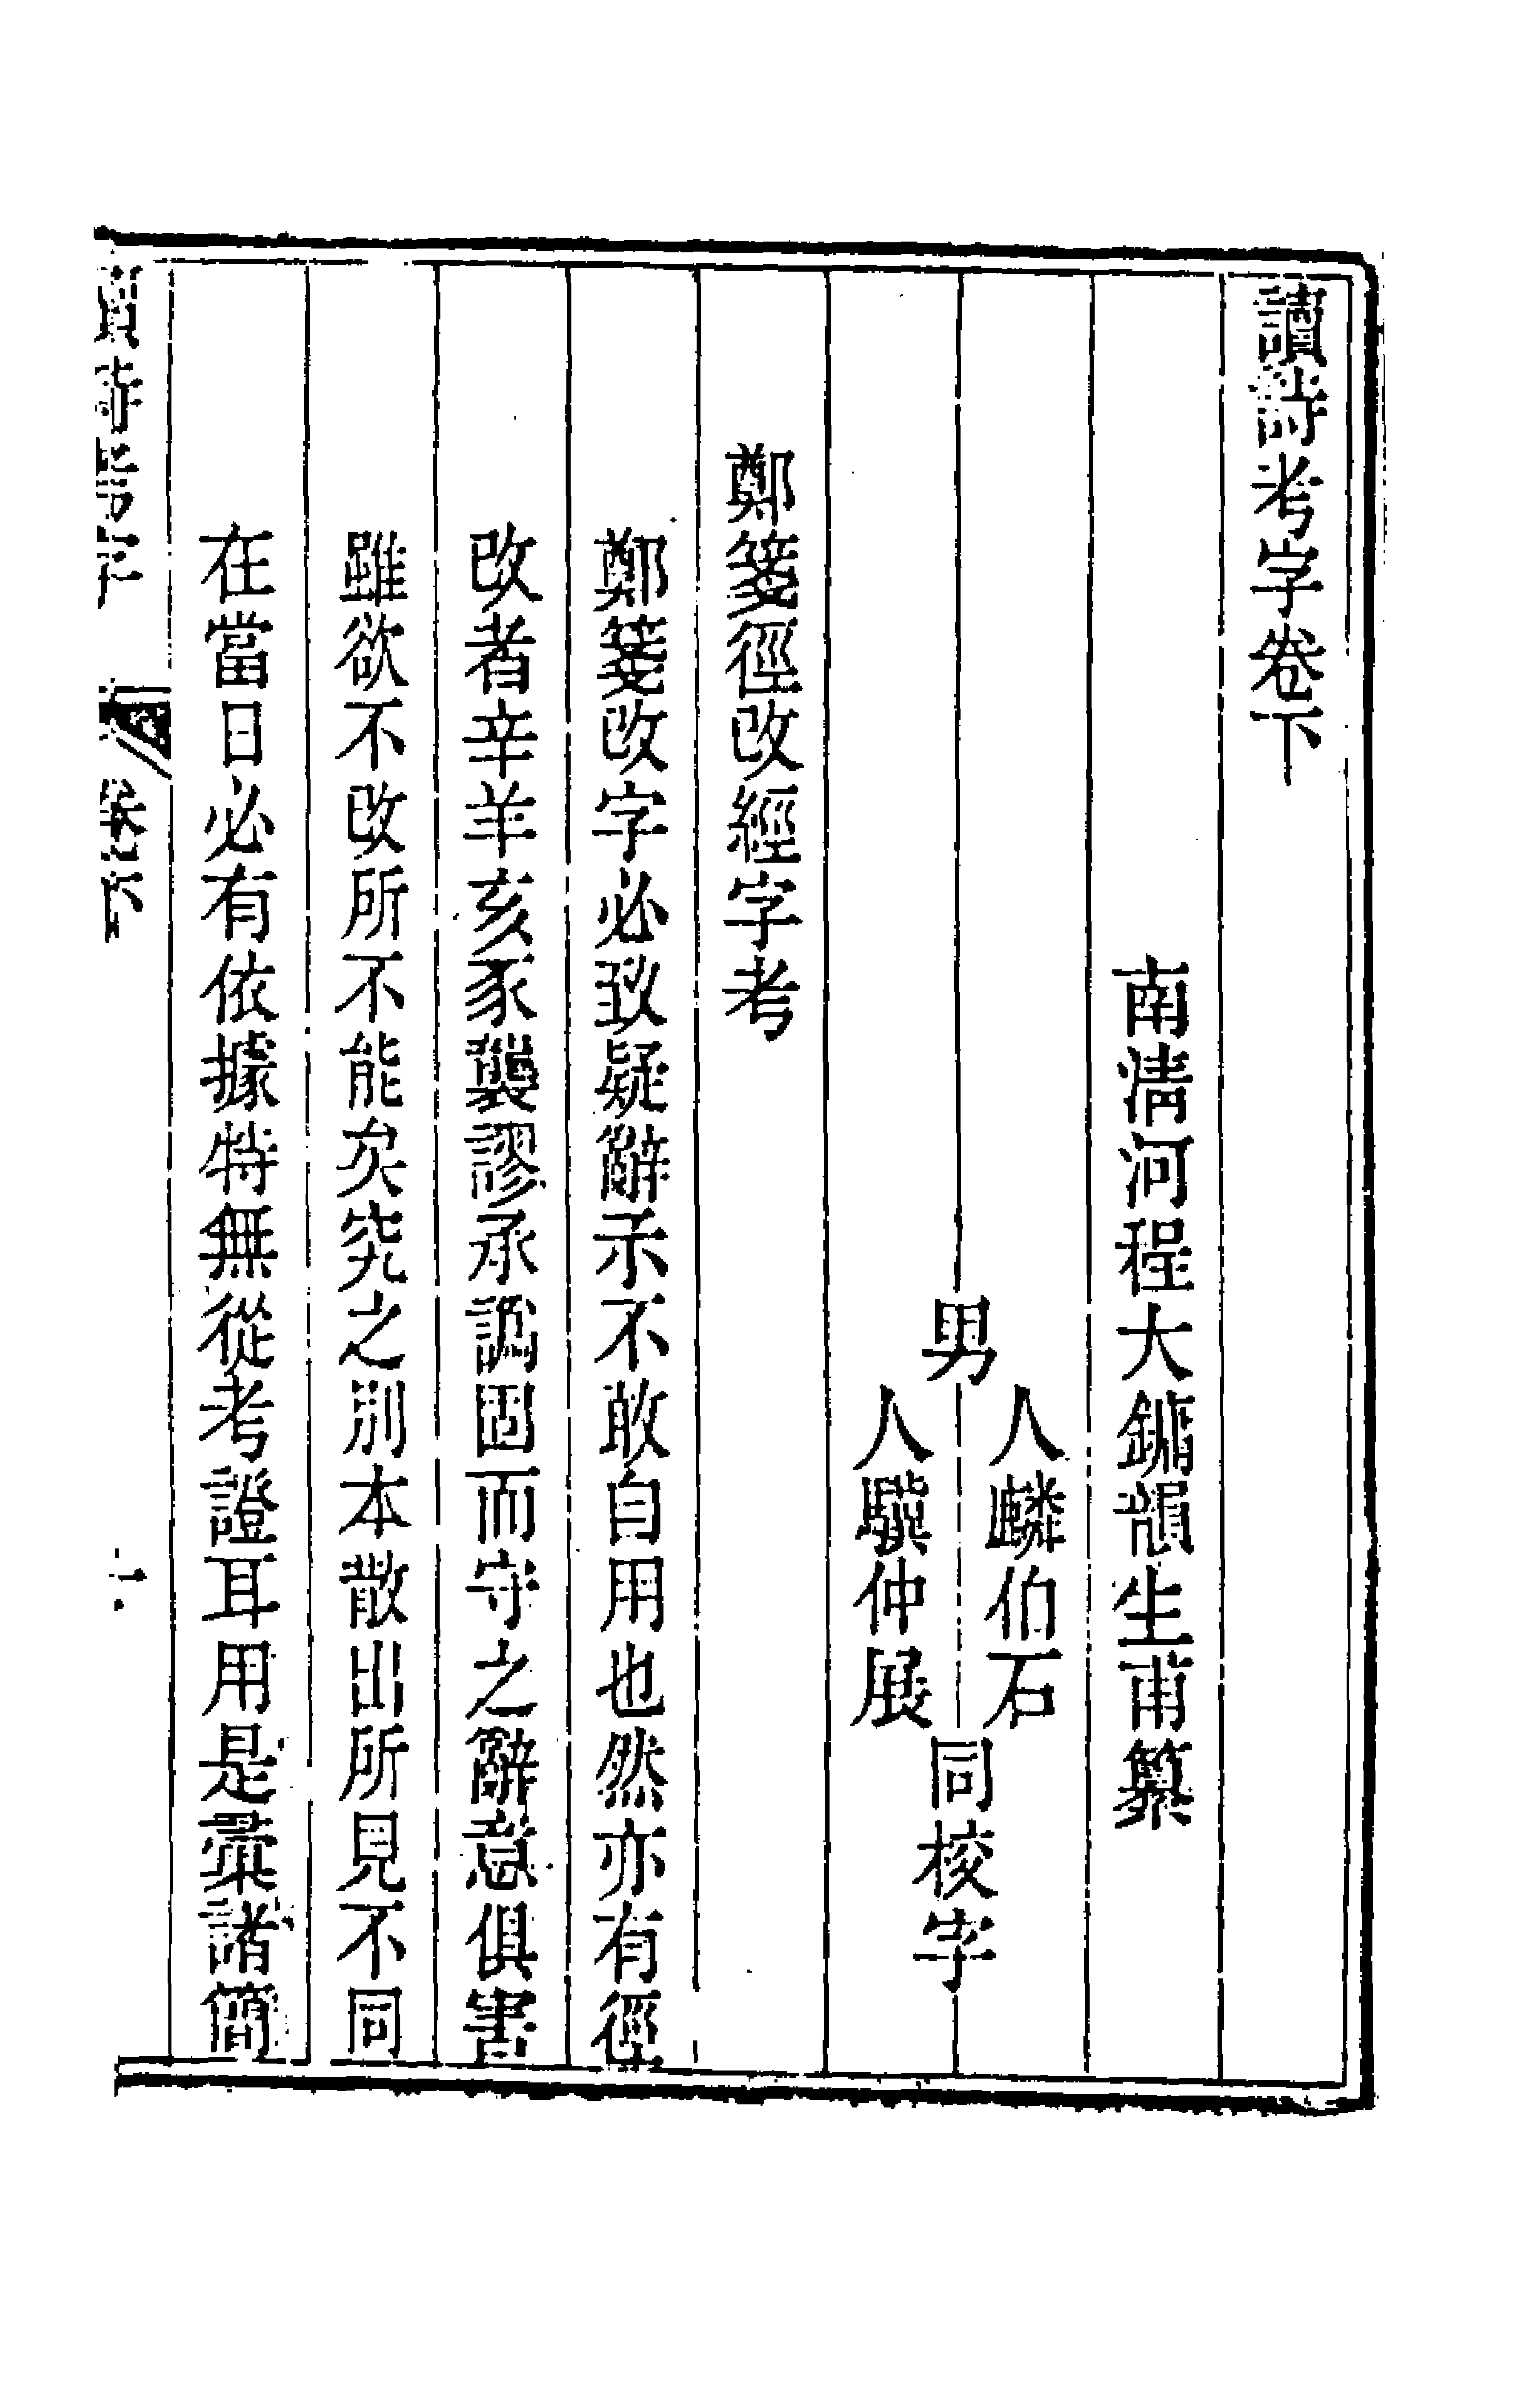 讀詩考字卷下
南淸河程大鏞韻生甫纂
男
人麟伯石
人驥仲展
同校字
鄭箋徑改經字考
鄭箋改字必致疑辭示不敢自用也然亦有徑
改者辛羊亥豕襲謬承譌固而守之辭意俱害
雖欲不改所不能矣究之別本散出所見不同
在當日必有依據特無從考證耳用是彙諸簡
讀詩考字 卷下 一